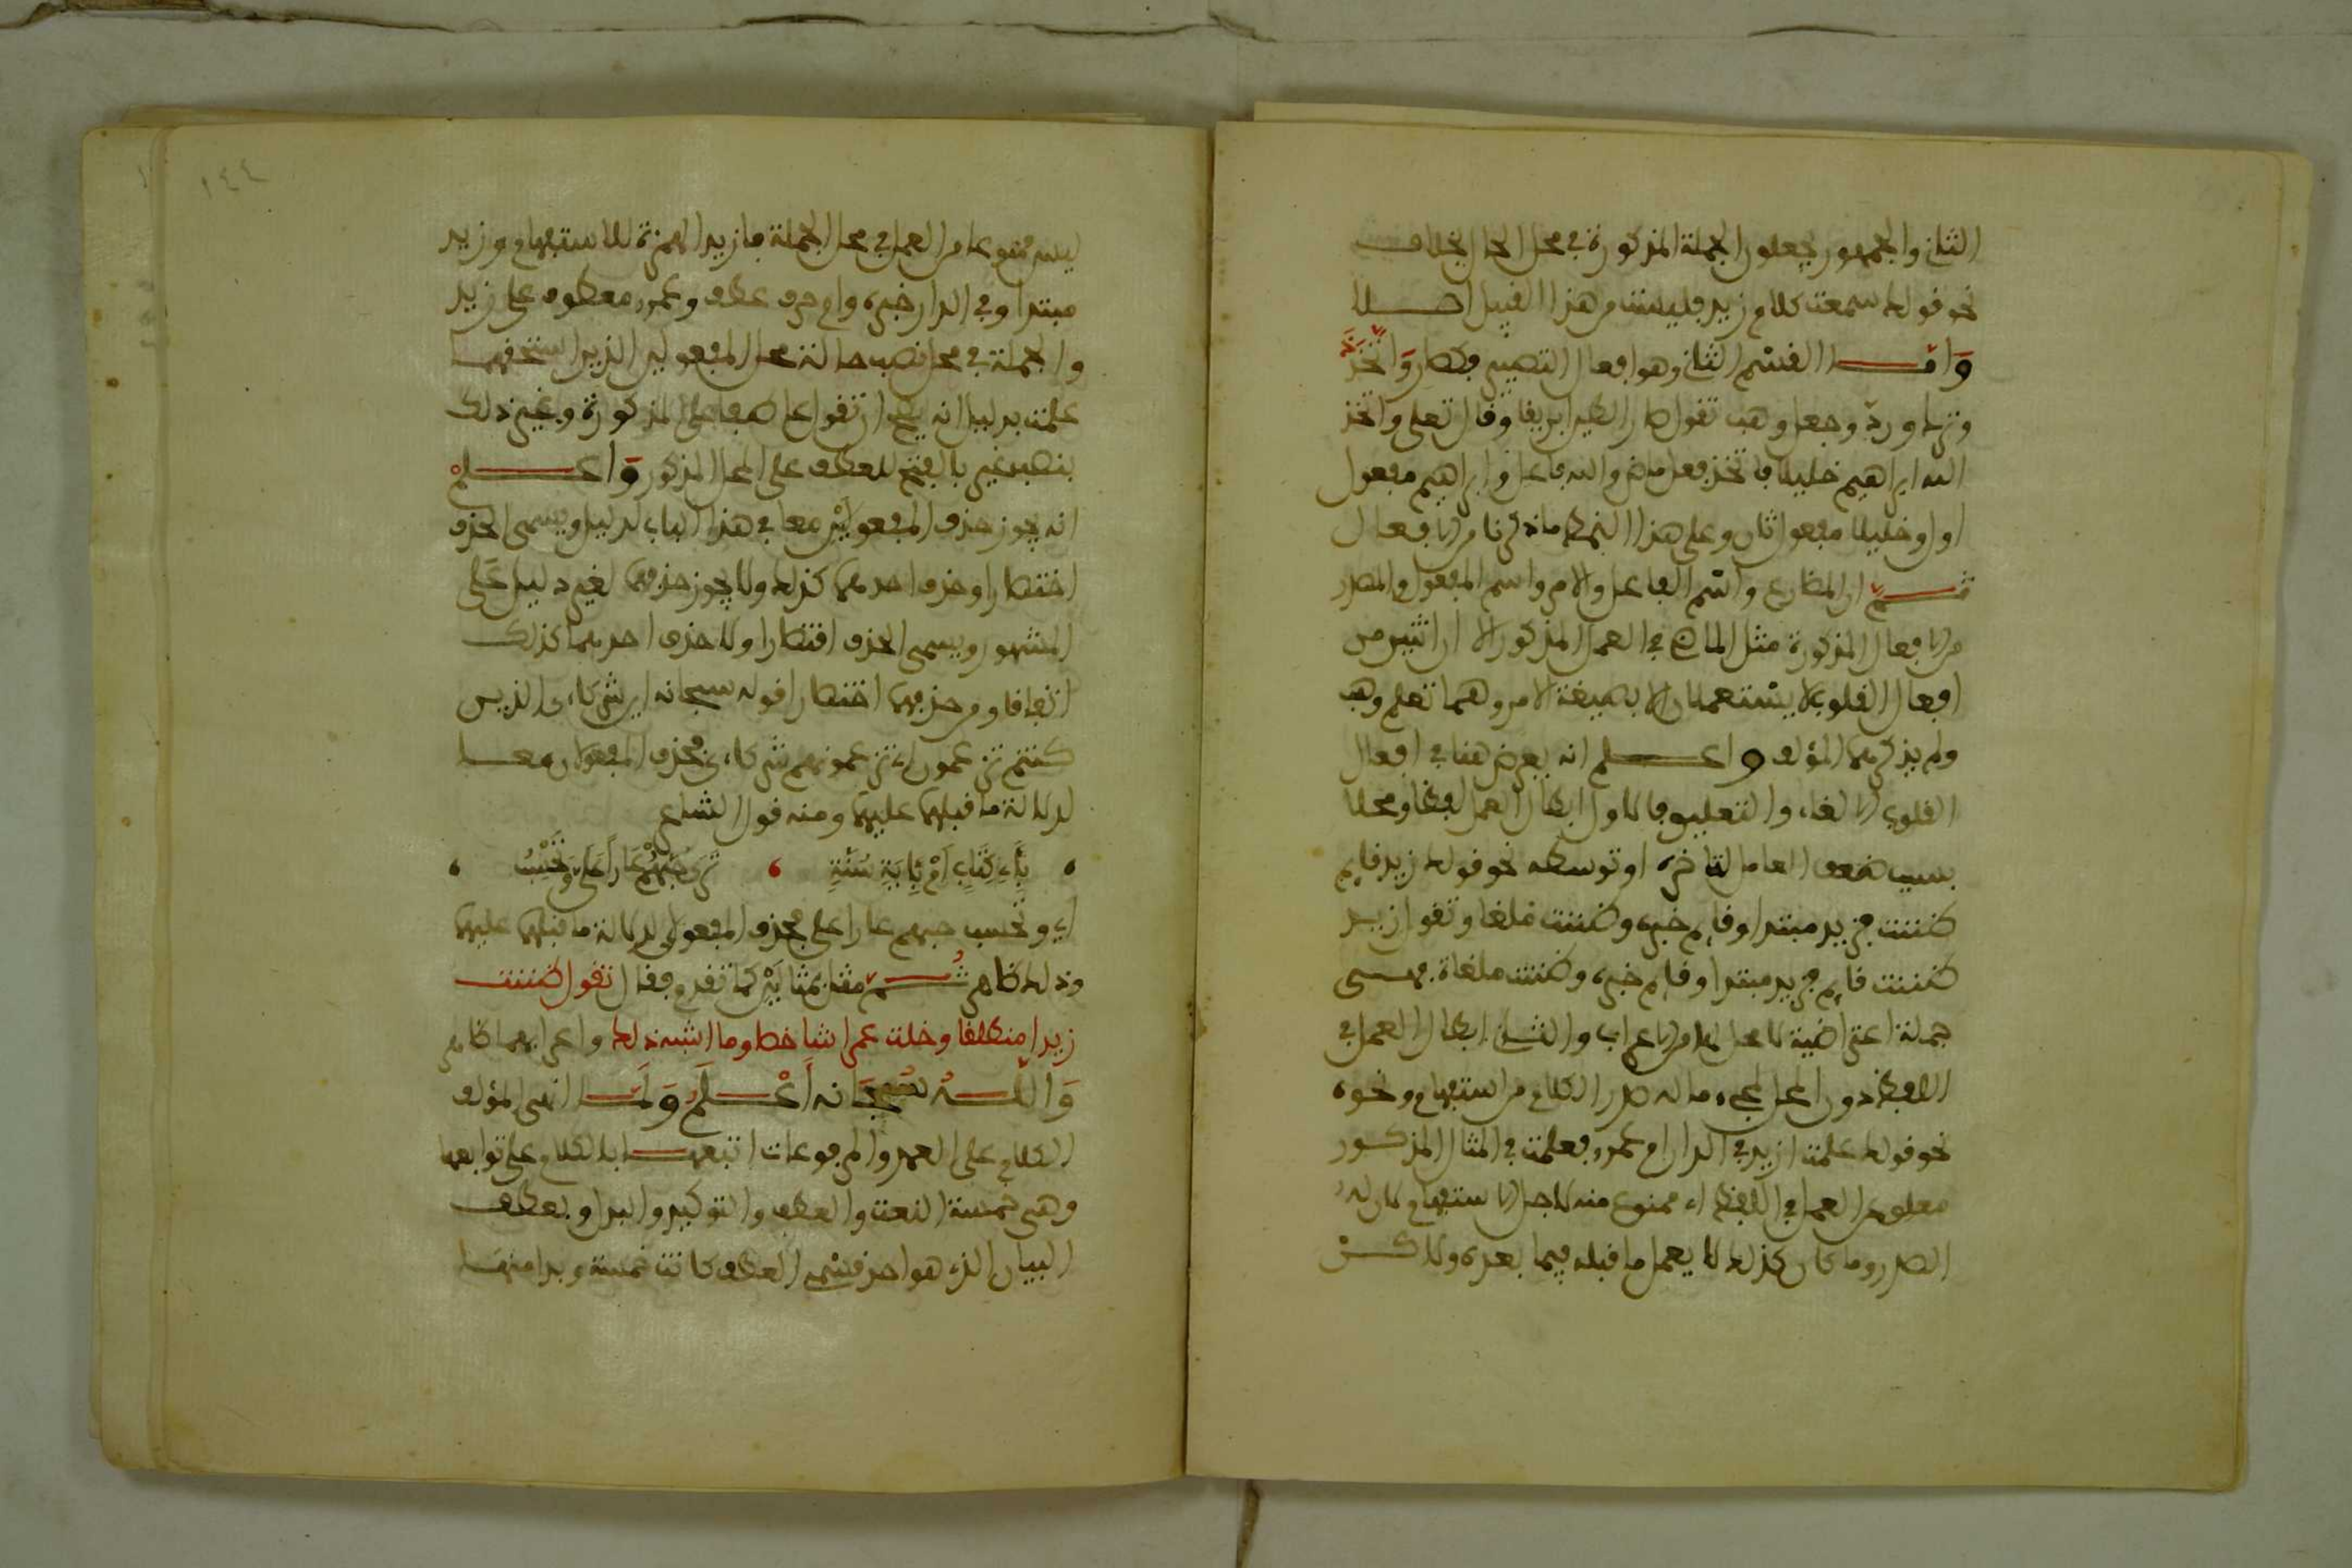 الثاني والجمهور يجعلون الجملة المذكورة في محل الحال بخلاف
نحو قولك سمعت كلام زيد فليست من هذا القبيل اصلا
وَامّا القسْم الثاني وهو افعال التصيير فكصار وَاتخذ
وترك وردّ وجعل وهب تقول صار الطين ابريقا وقال تعلى واتخذ
الله ابراهيم خليلا فاتخذ فعل ماض والله فاعل وابراهيم مفعول
اول وخليلا مفعول ثان وعلى هذا النمط ما ذكرنا من الافعال
ثمّ ان المضارع واسْم الفاعل والامر واسم المفعول والمصدر
من الافعال المذكورة مثل الماضي في العمل المذكور الا ان اثنين من
افعال القلوب لا يسْتعملان الا بصيغة الامر وهما تعلم وهب
ولم يذكرهما المؤلف واعلم انه يعرض هنا في افعال
القلوب الالغاء والتعليق فالاول ابطال العمل لفظا ومحلا
بسبب ضعف العامل لتاخره او توسطه نحو قولك زيد قايم
ظننت فزيد مبتدا وقايم خبره وظننت ملغا وتقول زيد
ظننت قايم فزيد مبتدا وقايم خبره وظننت ملغاة فهي
جملة اعتراضية لا محل لها من الاعراب والثاني ابطال العمل في
اللفظ دون المحل لمجيء ما له صدر الكلام من استفهام ونحوه
نحو قولك علمت ازيد في الدار ام عمرو فعلمت في المثال المذكور
معلق عن العمل في اللفظ اي ممنوع منه لاجل الاستفهام لان له
الصدر وما كان كذلك لا يعمل ما قبله فيما بعده ولاكنْ
ليس ممنوعا من العمل في محل الجملة فازيد الهمزة للاستفهام وزيد
مبتدا وفي الدار خبره وام حرف عطف وعمرو معطوف على زيد
والجملة في محل نصب حالة محل المفعولين الذين استحقهما
علمت بدليل انه يجوز ان تقول عاطفا على المذكورة وغير ذلك
بنصب غير بالفتح للعطف على المحل المذكور وَاعلمْ
انه يجوز حذف المفعولَيْن معا في هذا الباب لدليل ويسمى الحذف
اختصارا وحذف احدهما كذلك ولا يجوز حذفهما لغير دليل عَلى
المشهور ويسمى الحذف اقتصارا ولا حذف احدهما كذلك
اتفاقا ومن حذفهما اختصارا قوله سبحانه اين شركاءي الذين
كنتم تزعمون اي تزعمونهم شركاءي فحذف المفعولان معا
لدلالة ما قبلهما عليهما ومنه قول الشاعر
، بِأَيِّ كِتَابٍ أَمْ بِأَيَةِ سُنَّةٍ ، تَرَى حُبَّهُمْ عَارًا عَلَيَّ وَتَحْسِبُ ،
اي وتحسب حبهم عارا علي فحذف المفعولين لدلالة ما قبلهما عليهما
وذلك ظاهر ثُمّ مثل بمثالَيْن كما تقدم فقال تقول ظننت
زيدا منطلقا وخلت عمرا شاخصا وما اشبه ذلك واعرابهما ظاهر
وَاللّهُ سُبْحَانه أَعْلَمُ وَلَمّا انهى المؤلف
الكلام على العمد والمرفوعات اتبعها بالكلام على توابعها
وهي خمسة النعت والعطف والتوكيد والبدل وبعطف
البيان الذي هو احد قسْمي العطف كانت خمسة وبدا منها
١٤٤